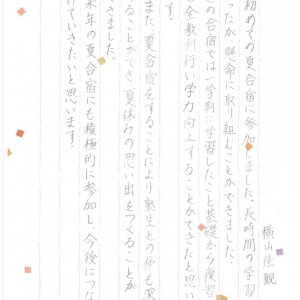 横山佳観
初めての夏合宿に参加しました。長時間の学習
ったが、懸命に取り組むことができました。
の合宿では一学期に学習したこと基礎から復習
全教科行い学力向上することができたと思い
す。
また、夏合宿をすることにより塾生との仲も深
ることができ、夏休みの思い出をつくることが
きました。
来年の夏合宿にも積極的に参加し、今後につな
げていきたいと思います。